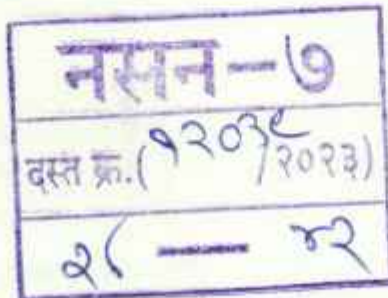 नसन-७
दस्त क्र.(१२०३९/२०२३)
२८ — ४२